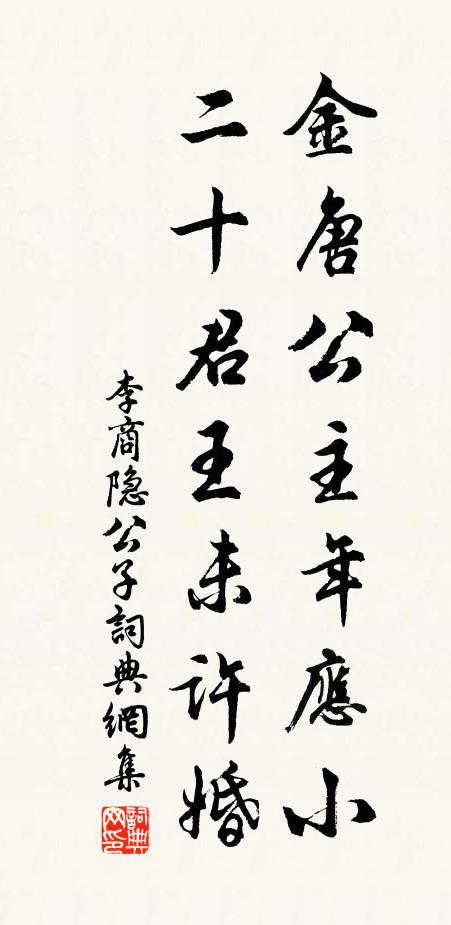 金唐公主年應小
二十君王未許婚
李商隐公子詞典網集
詞典网印